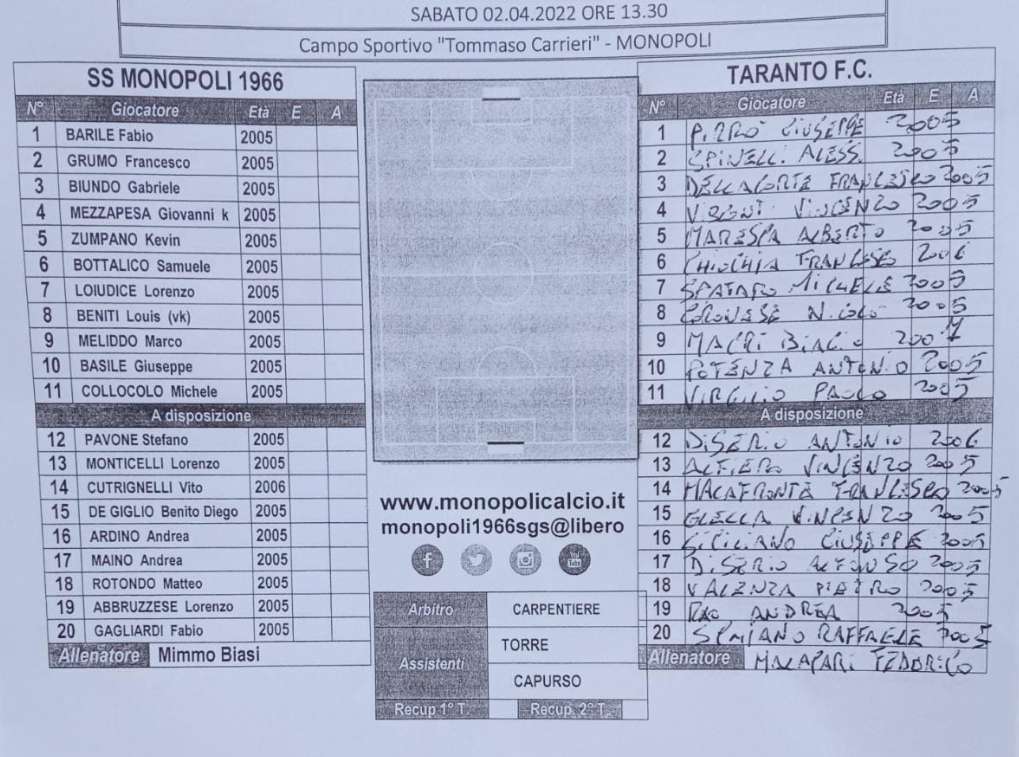 SABATO 02.04.2022 ORE 13.30
Campo Sportivo "Tommaso Carrieri" - MONOPOLI
SS MONOPOLI 1966
N° Giocatore Età E A
1 BARILE Fabio 2005
2 GRUMO Francesco 2005
3 BIUNDO Gabriele 2005
4 MEZZAPESA Giovanni k 2005
5 ZUMPANO Kevin 2005
6 BOTTALICO Samuele 2005
7 LOIUDICE Lorenzo 2005
8 BENITI Louis (vk) 2005
9 MELIDDO Marco 2005
10 BASILE Giuseppe 2005
11 COLLOCOLO Michele 2005
A disposizione
12 PAVONE Stefano 2005
13 MONTICELLI Lorenzo 2005
14 CUTRIGNELLI Vito 2006
15 DE GIGLIO Benito Diego 2005
16 ARDINO Andrea 2005
17 MAINO Andrea 2005
18 ROTONDO Matteo 2005
19 ABBRUZZESE Lorenzo 2005
20 GAGLIARDI Fabio 2005
Allenatore Mimmo Biasi
www.monopolicalcio.it
monopoli1966sgs@libero
Arbitro CARPENTIERE
Assistenti TORRE
CAPURSO
Recup 1° T. Recup. 2° T.
TARANTO F.C.
N° Giocatore Età E A
1 PIRRO' GIUSEPPE 2005
2 SPINELLI ALESS. 2005
3 DELLACORTE FRANCESCO 2005
4 VINCENZO 2005
5 MARESPA ALBERTO 2005
6 CHIOCHIA FRANCESCO 2006
7 SPATARO MICHELE 2005
8 NICOLÒ 2005
9 MACRÌ BIAGIO
10 POTENZA ANTONIO 2005
11 VIRGILIO PAOLO 2005
A disposizione
12 DISERIO ANTONIO 2006
13 ALFIERO VINCENZO 2005
14 MALAFRONTE FRANCESCO 2005
15 VINCENZO 2005
16 SICILIANO GIUSEPPE 2005
17 DISERIO ALFONSO 2005
18 VALENZA PIETRO 2005
19 RAO ANDREA 2005
20 RAFFAELE 2005
Allenatore FEDERICO